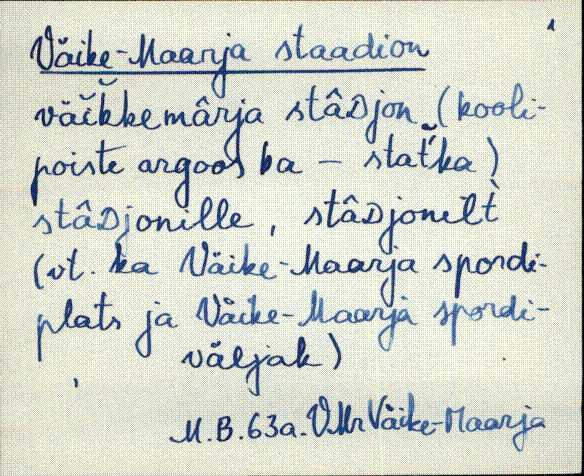 1
Väike-Maarja staadion
väi̮k̆kemârja stâDjon (kooli-
poiste argoos ka – stat̆'ka)
stâDjonille, stâDjonilt̀
(vt. ka Väike-Maarja spordi-
plats ja Väike-Maarja spordi-
väljak)
M.B.63a. VMr Väike-Maarja